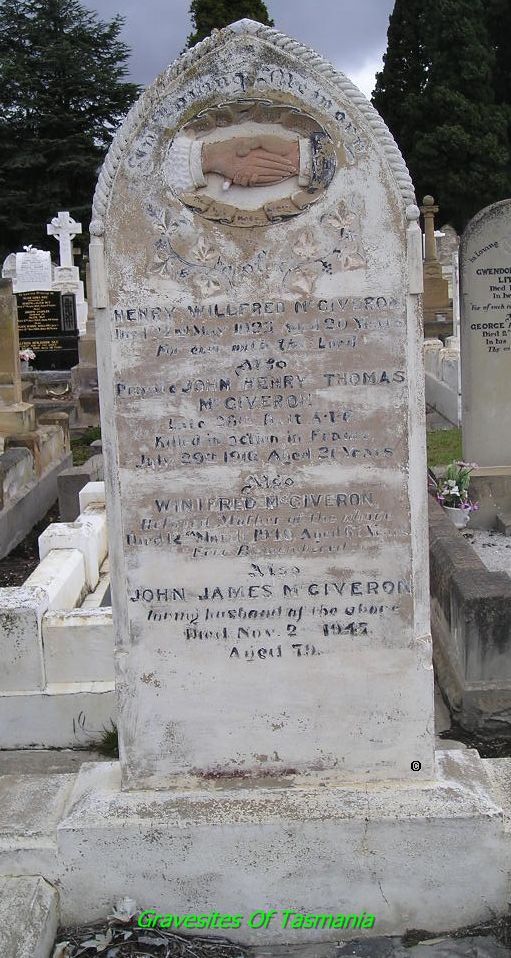 In Loving Memory
of
HENRY WILLFRED McGIVERON
Died 22nd May 1923 Aged 20 Years
For ever with the Lord
Also
Private JOHN HENRY THOMAS
McGIVERON
Late 26th Batt A.I.F.
Killed in action in France
July 29th 1916 Aged 21 Years
Also
WINIFRED McGIVERON
Beloved Mother of the above
Died 12th March 1940 Aged 67 Years
Ever Remembered
Also
JOHN JAMES McGIVERON
loving husband of the above
Died Nov. 2 1947
Aged 79.
©
Gravesites Of Tasmania
In Loving
GWENDO
GEORGE A